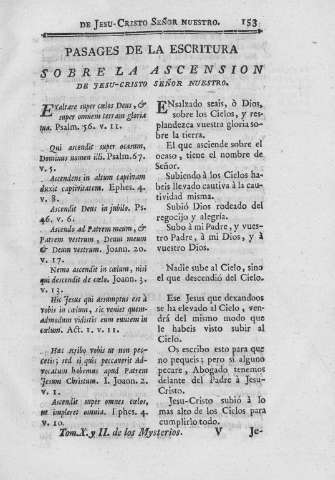 DE JESU-CRISTO SEÑOR NUESTRO. 153
PASAGES DE LA ESCRITURA
SOBRE LA ASCENSION
DE JESU-CRISTO SEÑOR NUESTRO.
EXaltare super cœlos Deus, &
super omnem terram gloria
tua. Psalm. 56. v. 11.
Qui ascendit super ocasum,
Dominus nomen illi. Psalm. 67.
v. 5.
Ascendens in altum captivam
duxit captivitatem. Ephes. 4.
v. 8.
Ascendit Deus in jubilo. Ps.
46. v. 6.
Ascendo ad Patrem meum, &
Patrem vestrum, Deum meum
& Deum vestrum. Joann. 20.
v. 17.
Nemo ascendit in cœlum, nisi
qui descendit de cœlo. Joann. 3.
v. 13.
Hic Jesus qui assumptus est à
vobis in cœlum, sic veniet quem-
admodum vidistis eum euntem in
cœlum. Act. 1. v. 11.
Hæc scribo vobis ut non pec-
cetis; sed si quis peccaverit ad-
vocatum habemus apud Patrem
Jesum Christum. I. Joann. 2.
v. 1.
Ascendit super omnes cœlos,
ut impleret omnia. Ephes. 4.
v. 10.
ENsalzado seais, ò Dios,
sobre los Cielos, y res-
plandezca vuestra gloria so-
bre la tierra.
El que asciende sobre el
ocaso, tiene el nombre de
Señor.
Subiendo à los Cielos ha-
beis llevado cautiva à la cau-
tividad misma.
Subió Dios rodeado del
regocijo y alegría.
Subo à mi Padre, y vues-
tro Padre, à mi Dios, y à
vuestro Dios.
Nadie sube al Cielo, sino
el que descendió del Cielo.
Ese Jesus que dexandoos
se ha elevado al Cielo, ven-
drá del mismo modo que
le habeis visto subir al
Cielo.
Os escribo esto para que
no pequeis; pero si alguno
pecare, Abogado tenemos
delante del Padre à Jesu-
Cristo.
Jesu-Cristo subió à lo
mas alto de los Cielos para
cumplirlo todo.
Tom. X. y II. de los Mysterios. V Je-